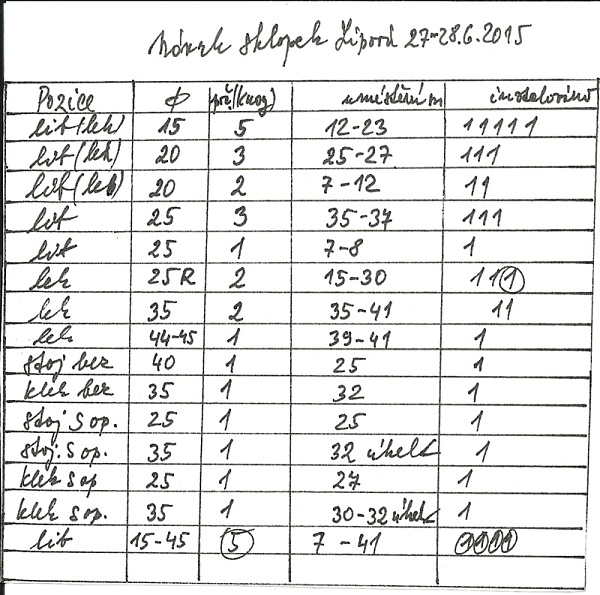 Návrh sklopek Lipová 27-28.6.2015
Pozice ϕ umístění m instalováno
lib (lek) 15 5 12-23 11111
lib (lek) 20 3 25-27 111
lib (lek) 20 2 7-12 11
lib 25 3 35-37 111
lib 25 1 7-8 1
lek 25R 2 15-30 111
lek 35 2 35-41 11
lek 44-45 1 39-41 1
stoj bez 40 1 25 1
klek bez 35 1 32 1
stoj s op. 25 1 25 1
stoj. s op. 35 1 32 úhel 1
klek s op 25 1 27 1
klek s op. 35 1 30-32 úhel 1
lib 15-45 5 7-41 1111